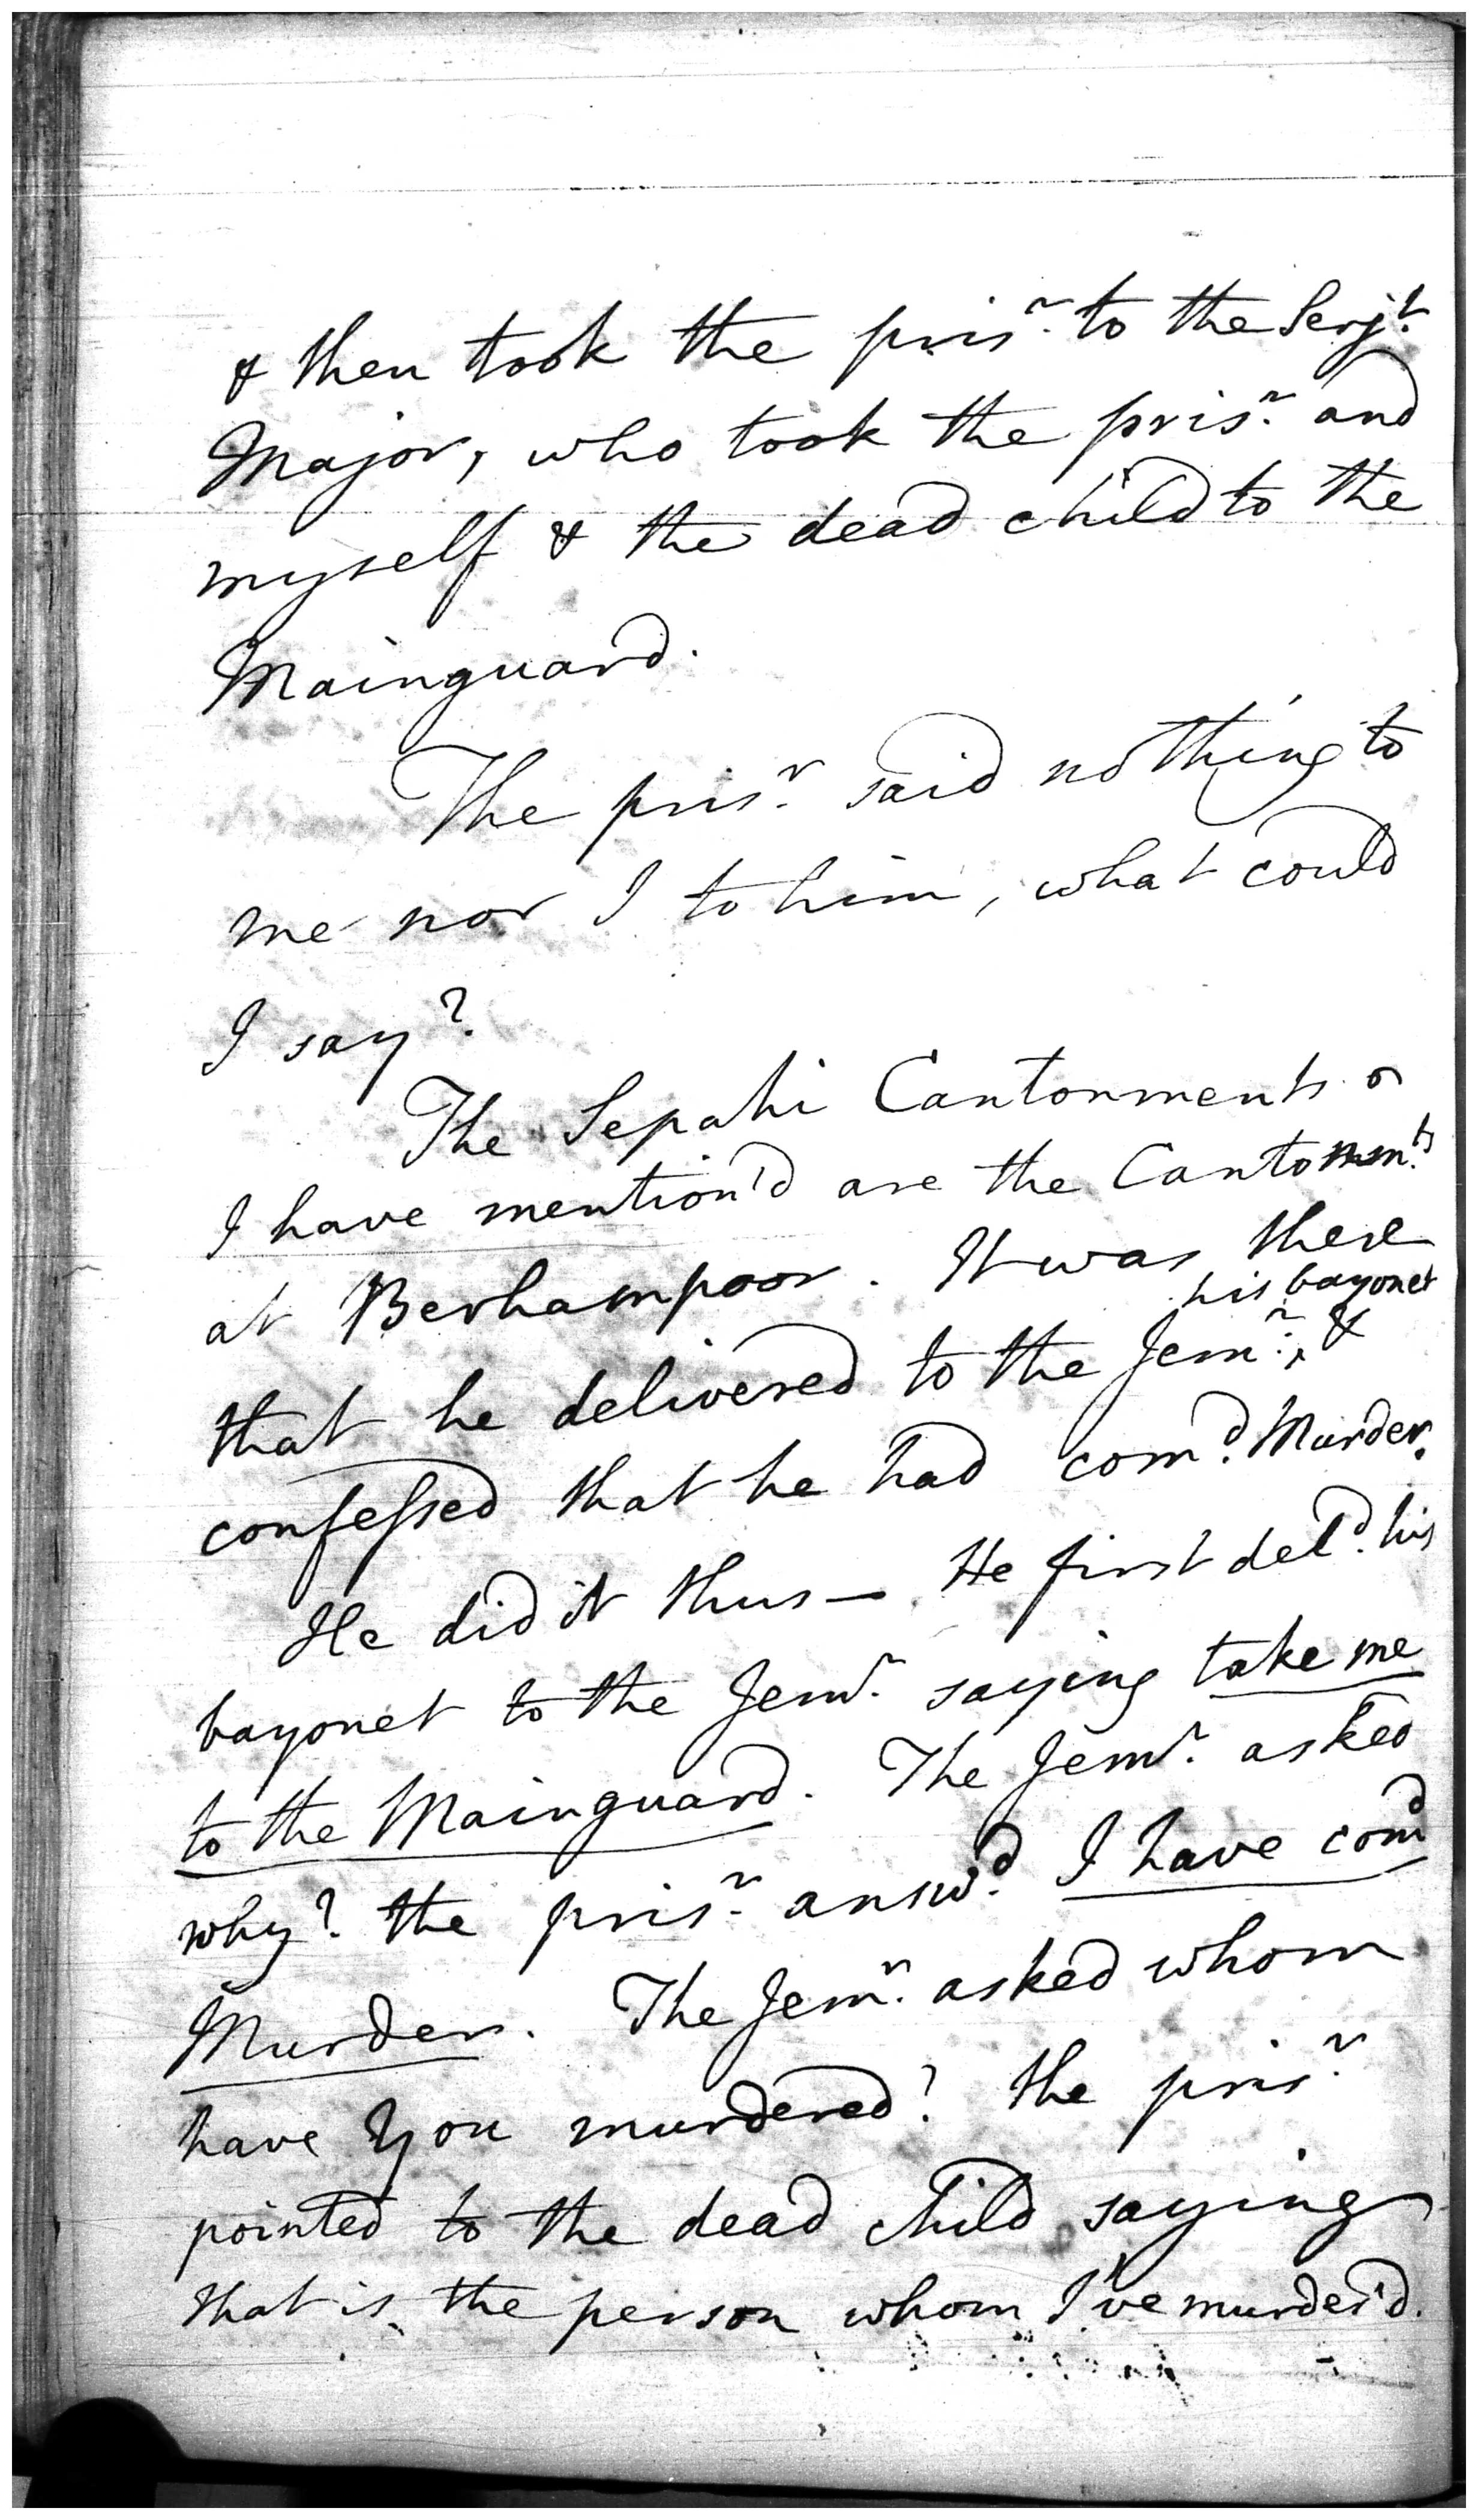 & then took the pris.r to the Serj.t
Major, who took the pris.r and
myself & the dead child to the
Mainguard.
The pris.r said nothing to
me nor I to him, what could
I say?
The Sepahi Cantonments
I have mention'd are the Cantonm.ts
at Berhampoor. It was there
his bayonet
that he delivered to the Jem.r, &
confessed that he had com.d Murder.
He did it thus — He first del.d his
bayonet to the Jem.r saying take me
to the Mainguard. The Jem.r asked
why? the pris.r answ.d I have com.d
Murder. The Jem.r asked whom
have you murdered? the pris.r
pointed to the dead child saying
that is the person whom I've murder'd.